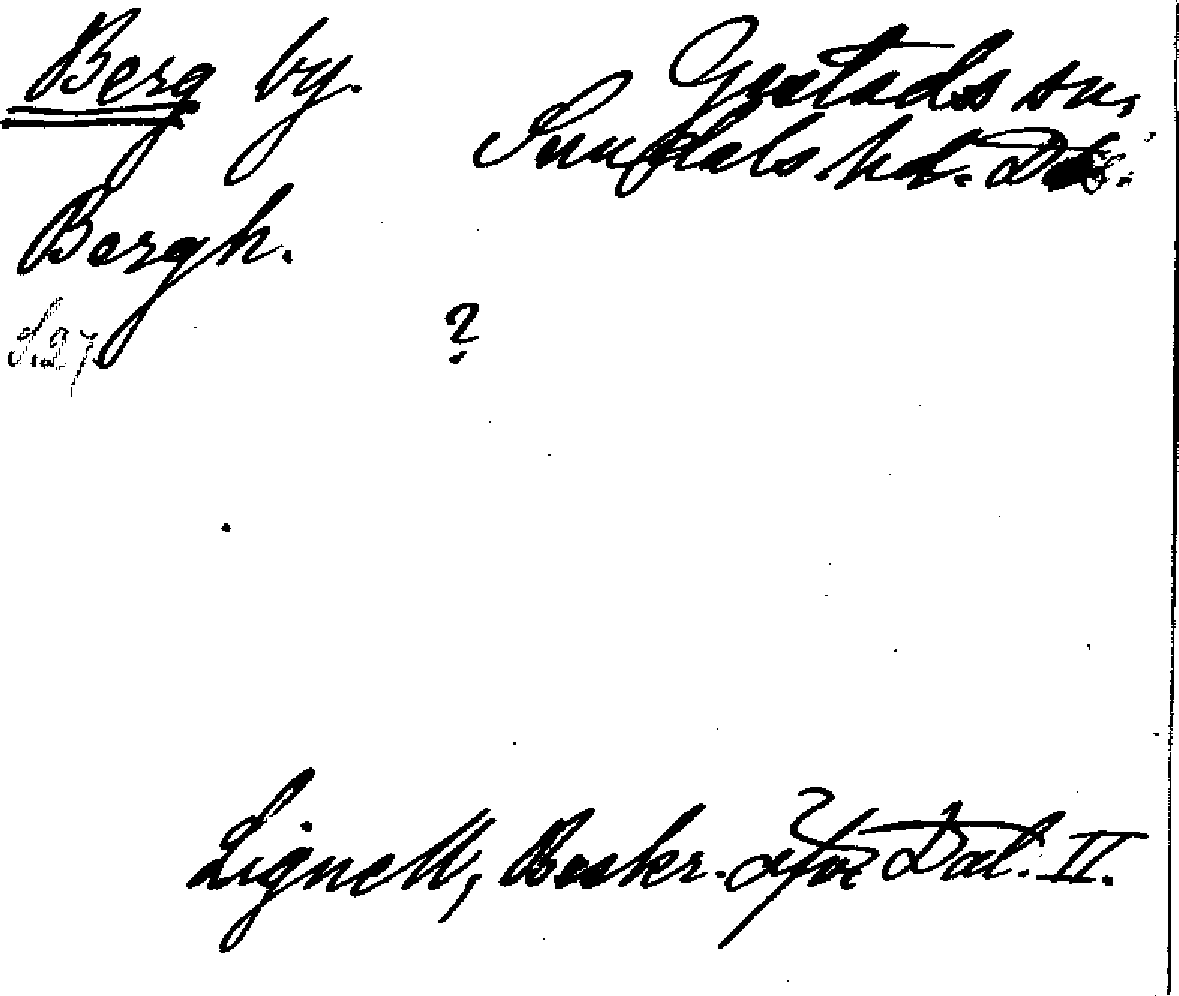 Berg by.
Gestads sn,
Sundals hd. Dls.
Bergh.
S. 27
?
Lignell, Beskr. öfver Dal. II.